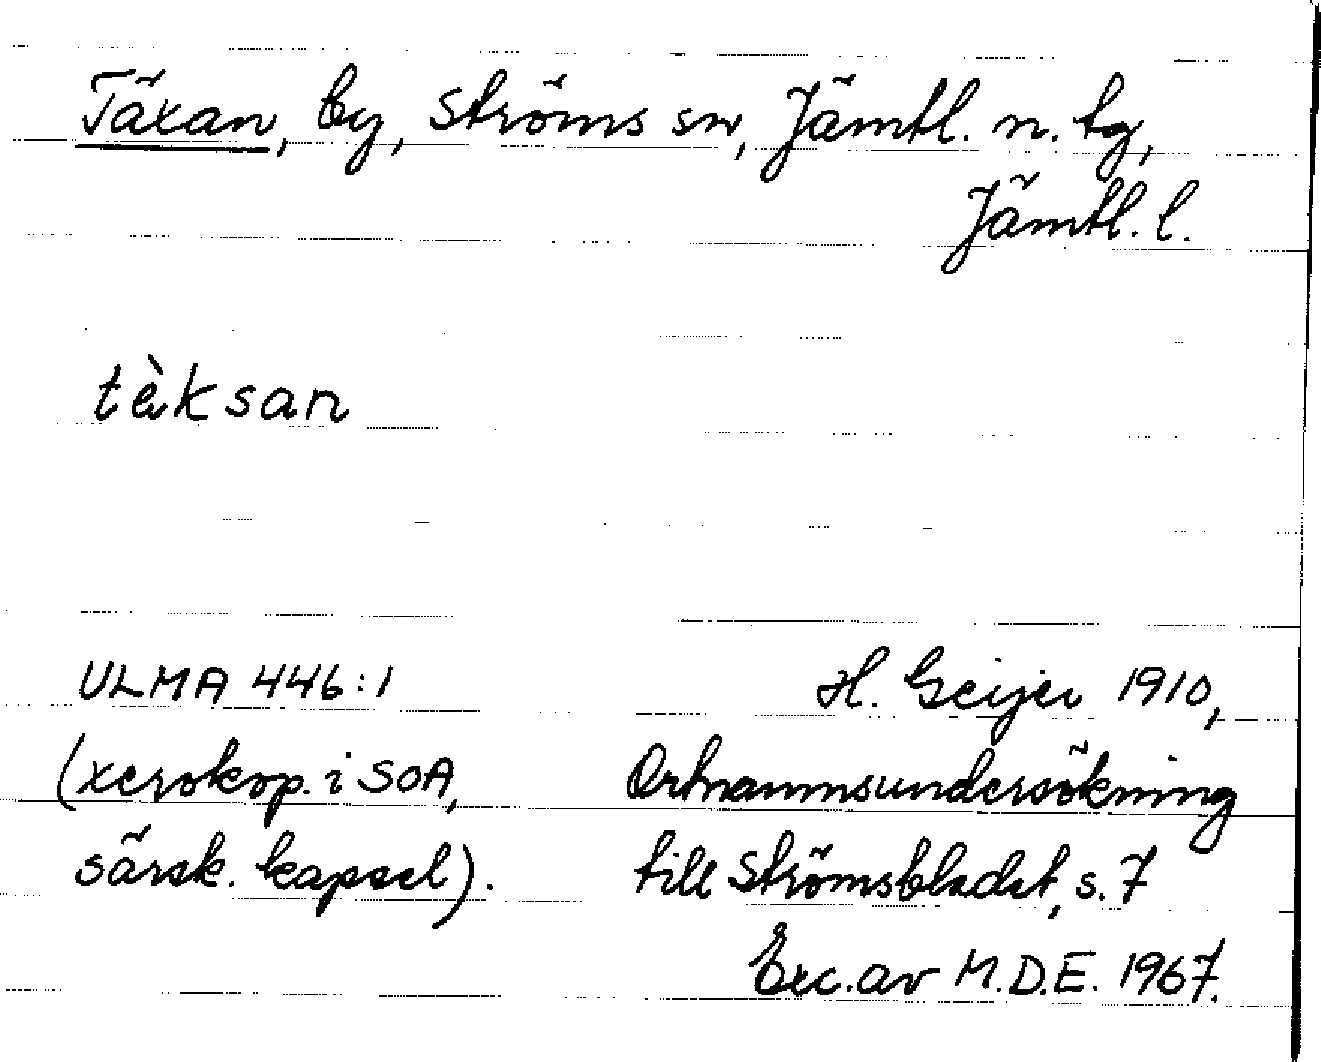 Täxan, by, Ströms sn, Jämtl. n. tg,
Jämtl. l.
tèksan
ULMA 446:1
(xerokop. i SOA,
särsk. kapsel).
H. Geijer 1910,
Ortnamnsundersökning
till Strömsbladet, s. 7
Exc. av M.D.E. 1967.